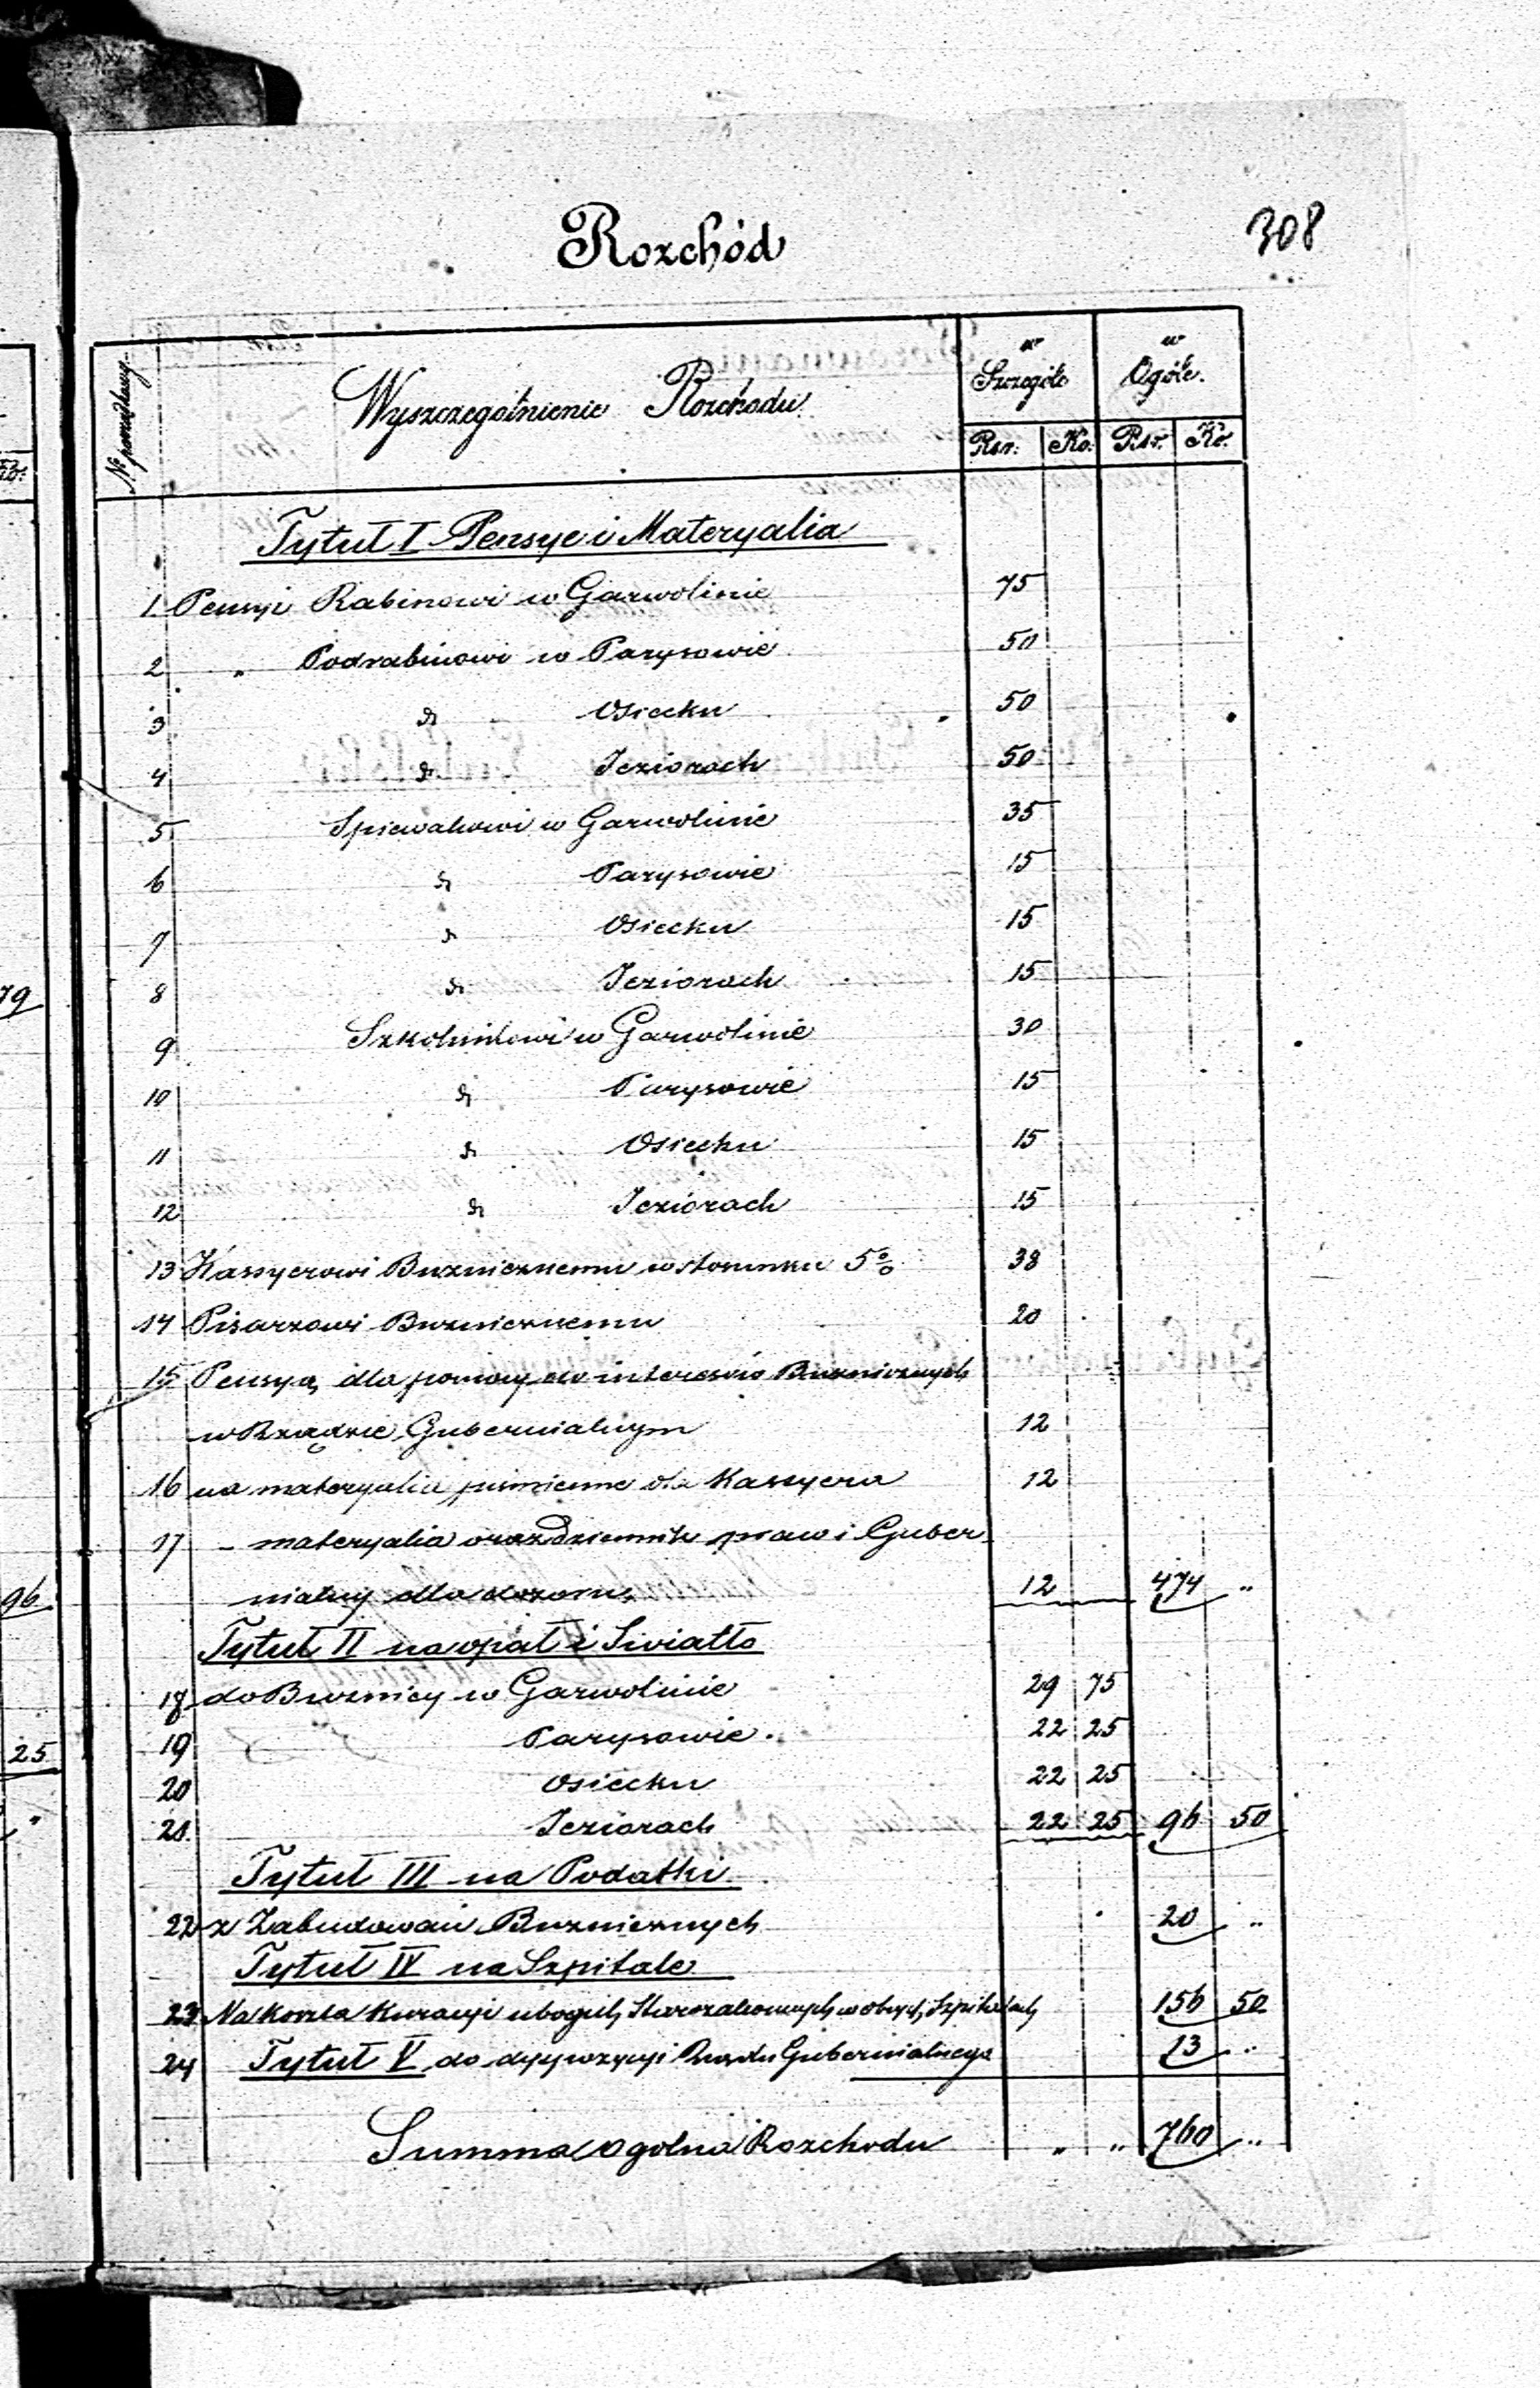 308
Rozchód
№ porządkowy
Wyszczególnienie Rozchodu
w Szczególe
w Ogóle.
Rsr. Ko. Rsr. Ko.
Tytuł I Pensye i Materyalia
1. Pensyi Rabinowi w Garwolinie 75
2 " Podrabinowi w Parysowie 50
3 do Osiecku 50
4 do Jeziorach 50
5 Spiewakowi w Garwolinie 35
6 do Parysowie 15
7 do Osiecku 15
8 do Jeziorach 15
9 Szkolnikowi w Garwolinie 30
10 do Parysowie 15
11 do Osiecku 15
12 do Jeziorach 15
13 Kassyerowi Bużnicznemu w stosunku 5% 38
14 Pisarzowi Bużnicznemu 20
15 Pensya dla do interesów Bużnicznych
w Rządzie Gubernialnym 12
16 na materyalia piśmienne dla Kassyera 12
17 – materyalia oraz dziennik praw i Guber
nialny dla dozoru 12 474 "
Tytuł II na opał i Swiatło
18 do Bużnicy w Garwolinie 29 75
19 Parysowie. 22 25
20 Osiecku 22 25
21. Jeziorach 22 25 96 50
Tytuł III na Podatki
22 z Zabudowań Bużnicznych 20 "
Tytuł IV na Szpitale
23 Na koszta Kuracyi ubogich Starozakonnych w obcych Szpitalach 156 50
24 Tytuł V do dyspozycyi Rządu Gubernialnego 13 "
Summa ogólna Rozchodu " " 760 "
79
96
25